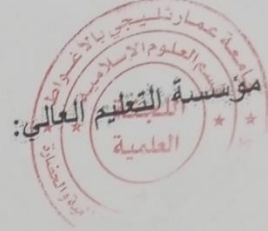 جامعة عمار ثليجي بالأغواط
قسم العلوم الإسلامية
مؤسسة التعليم العالي:
اللجنة
العلمية
والحضارة